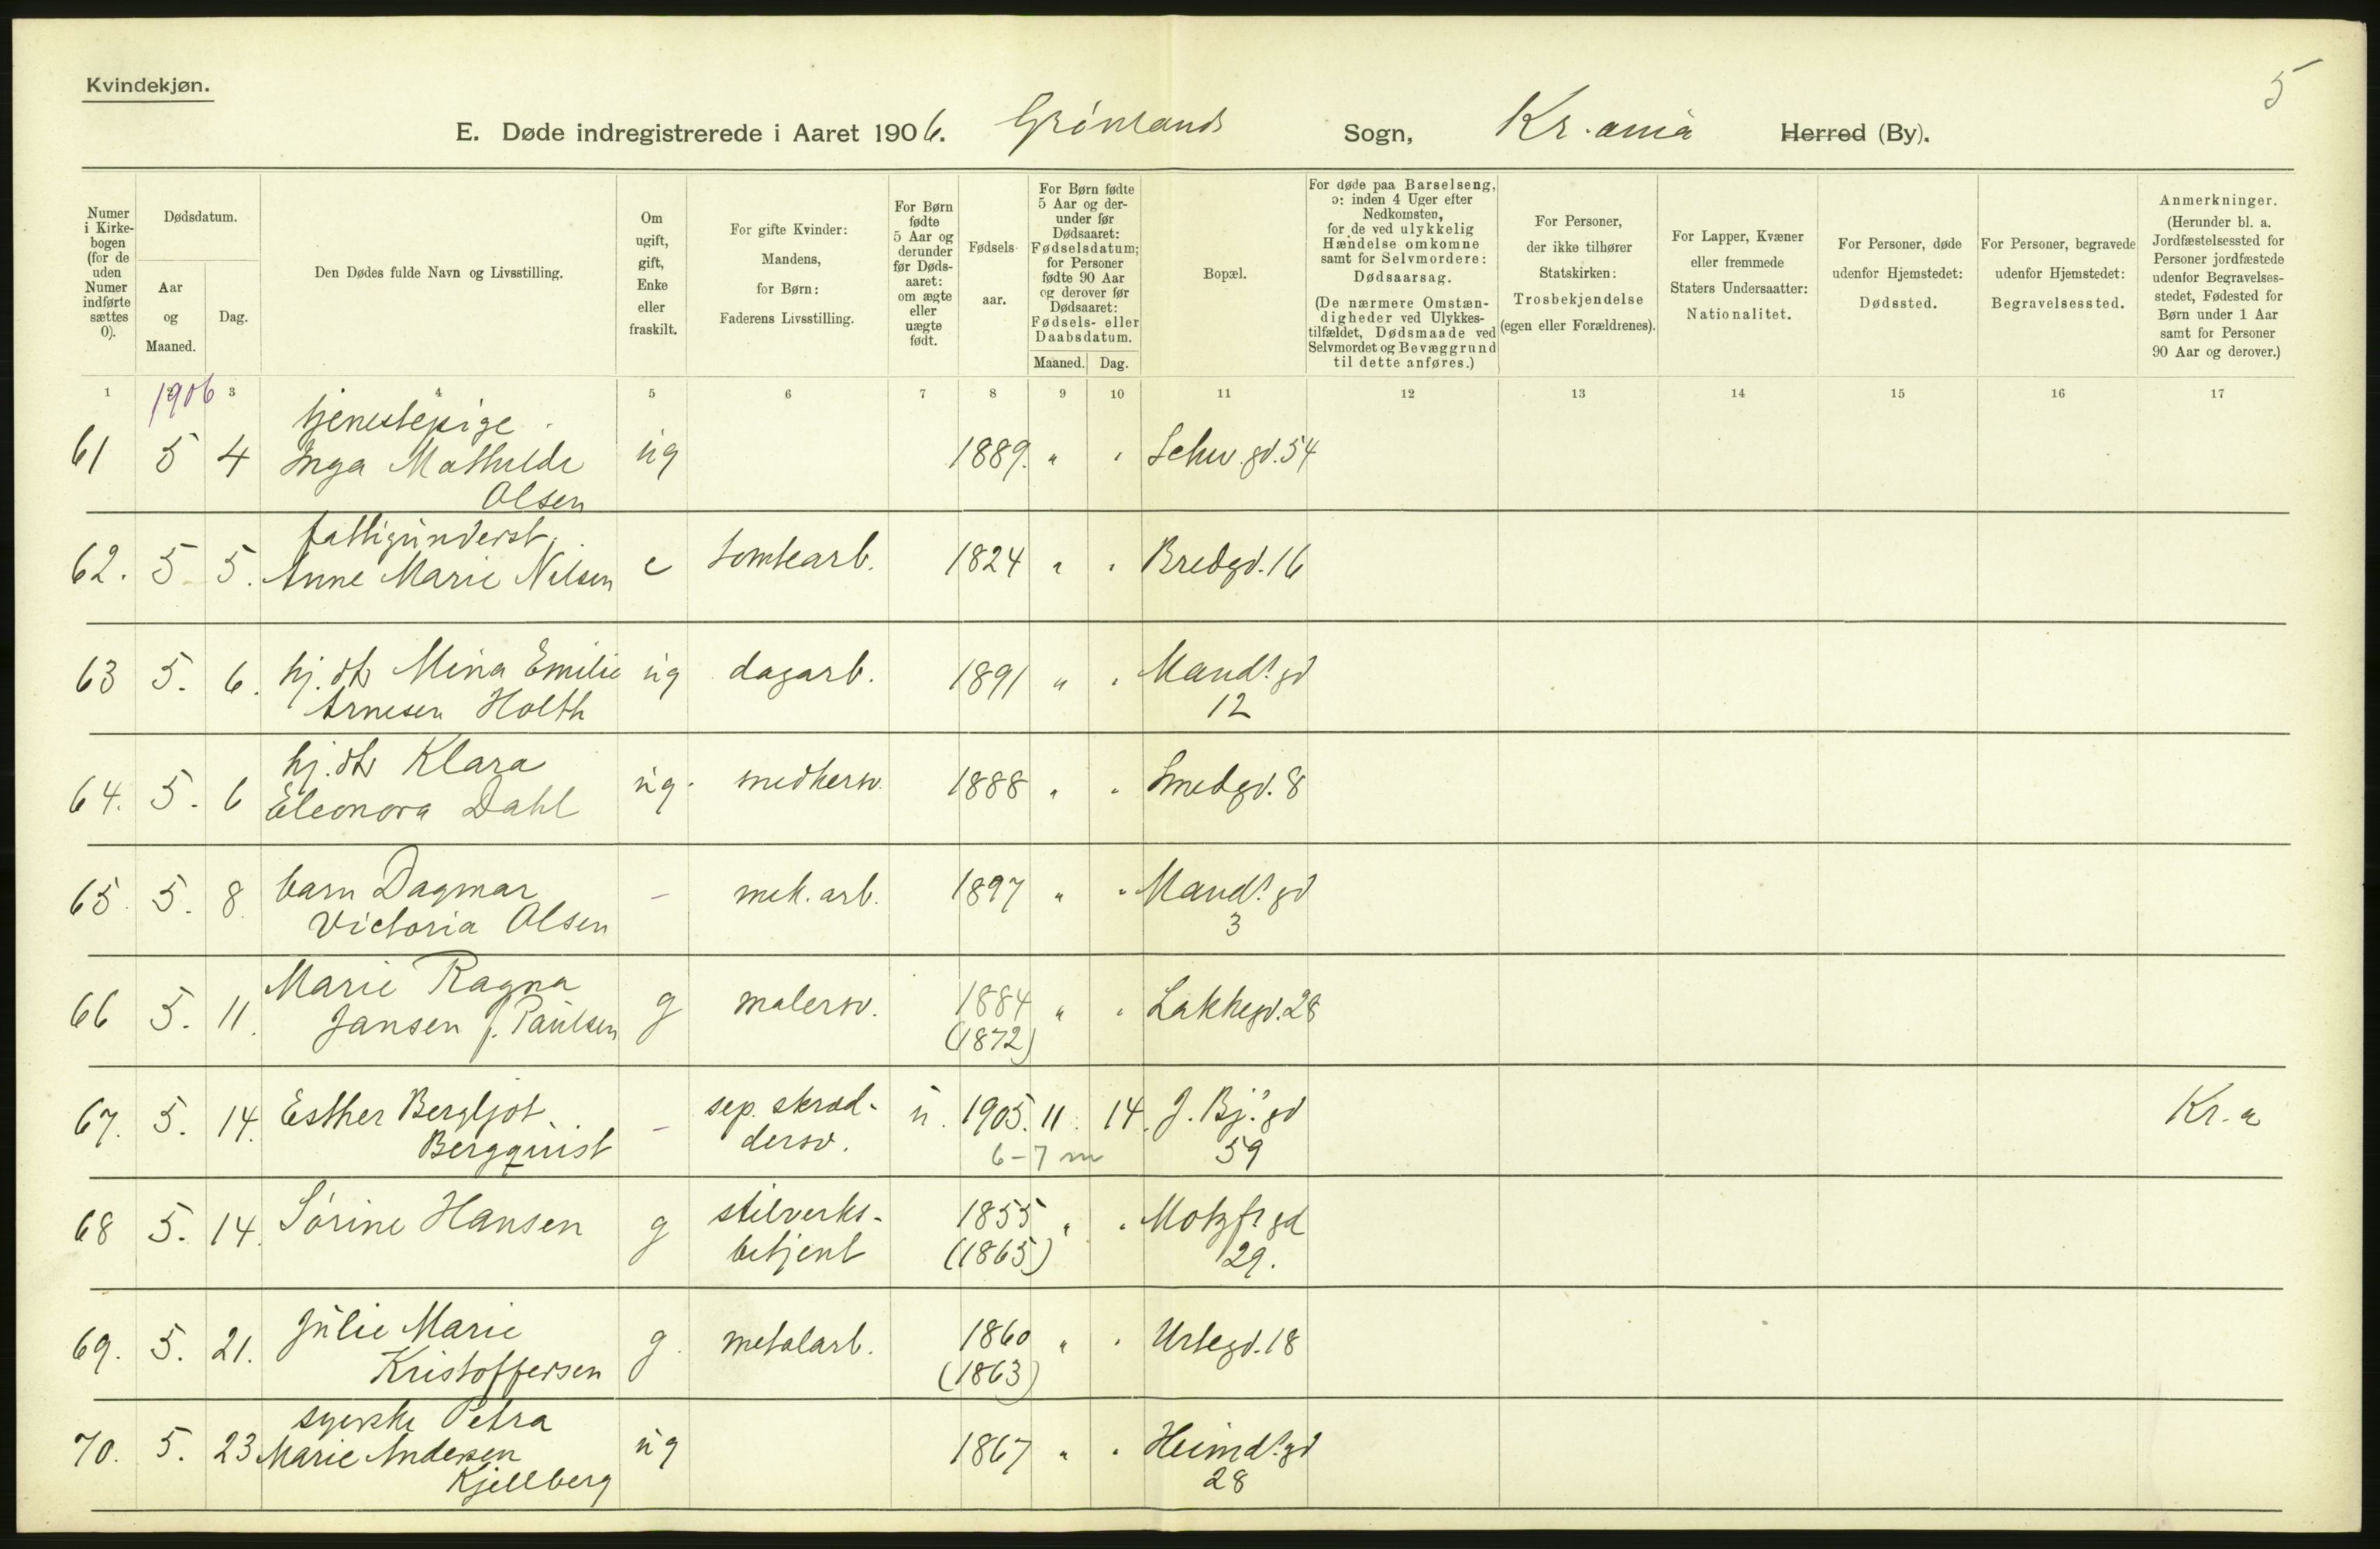 Kvindekjøn.
5
E. Døde indregistrerede i Aaret 1906. Grönlands Sogn, Kr.ania Herred (By).
Numer i Kirkebogen (for de uden Numer indførte sættes 0).
Dødsdatum.
Aar og Maaned.
Dag.
Den Dødes fulde Navn og Livsstilling.
Om ugift, gift, Enke eller fraskilt.
For gifte Kvinder: Mandens, for Børn: Faderens Livsstilling.
For Børn fødte 5 Aar og derunder før Dødsaaret: om ægte eller uægte født.
Fødselsaar.
For Børn fødte 5 Aar og derunder før Dødsaaret: Fødselsdatum; for Personer fødte 90 Aar og derover før Dødsaaret: Fødsels- eller Daabsdatum.
Maaned. Dag.
Bopæl.
For døde paa Barselseng, ɔ: inden 4 Uger efter Nedkomsten, for de ved ulykkelig Hændelse omkomne samt for Selvmordere: Dødsaarsag.
(De nærmere Omstændigheder ved Ulykkestilfældet, Dødsmaade ved Selvmordet og Bevæggrund til dette anføres.)
For Personer, der ikke tilhører Statskirken: Trosbekjendelse (egen eller Forældrenes).
For Lapper, Kvæner eller fremmede Staters Undersaatter: Nationalitet.
For Personer, døde udenfor Hjemstedet: Dødssted.
For Personer, begravede udenfor Hjemstedet: Begravelsessted.
Anmerkninger.
(Herunder bl. a. Jordfæstelsessted for Personer jordfæstede udenfor Begravelsesstedet, Fødested for Børn under 1 Aar samt for Personer 90 Aar og derover.)
1 2 3 4 5 6 7 8 9 10 11 12 13 14 15 16 17
1906
tjenestepige
61 5 4 Inga Mathilde ug 1889. " " Schw.gd.54
Olsen
fattigunderst.
62. 5 5. Anne Marie Nilsen e tomtearb. 1824 " " Bredgd.16
63 5. 6. hj. dtr Mina Emilie ug dagarb. 1891 " " Mandl.gd
Arnesen Holth 12
hj. dtr Klara
64. 5. 6 Eleonora Dahl ug. snedkersv. 1888 " " Smedgd.8
65. 5. 8. barn Dagmar - mek. arb. 1897 " " Mandl.gd
Victoria Olsen 3
Marie Ragna
66 5. 11. Jansen f. Paulsen g malersv. 1884 " " Lakkegd.28
(1872)
67. 5. 14. Esther Bergljot - sep. skræd- u. 1905. 11. 14. J. Bj.s gd Kr.a
Bergquist dersv. 6-7 m 59
68 5. 14. Sörine Hansen g stilverks- 1855 " " Motzf.s gd
betjent (1865) 29.
69. 5. 21. Julie Marie g. metalarb. 1860 " " Urtegd.18
Kristoffersen (1863)
syerske Petra
70. 5. 23 Marie Andersen ug 1867 " " Heimd.s gd
Kjellberg 28